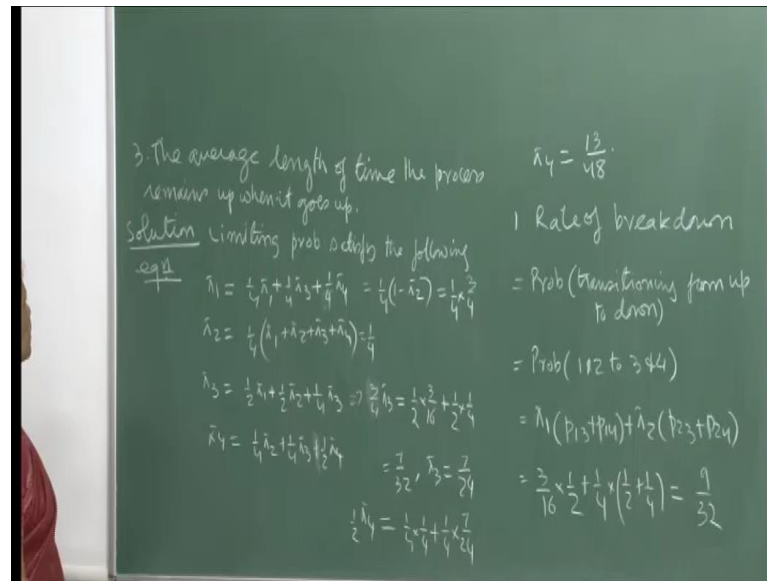 3. The average length of time the process
remains up when it goes up.
Solution Limiting prob satisfy the following
eqn
π̄1 = 1/4 π̄1 + 1/4 π̄3 + 1/4 π̄4 = 1/4 (1 - π̄2) = 1/4 × 3/4
π̄2 = 1/4 (π̄1 + π̄2 + π̄3 + π̄4) = 1/4
π̄3 = 1/2 π̄1 + 1/2 π̄2 + 1/4 π̄3 => 3/4 π̄3 = 1/2 × 3/16 + 1/2 × 1/4
π̄4 = 1/4 π̄2 + 1/4 π̄3 + 1/2 π̄4
= 7/32, π̄3 = 7/24
1/2 π̄4 = 1/4 × 1/4 + 1/4 × 7/24
π̄4 = 13/48.
1 Rate of breakdown
= Prob (transitioning from up
to down)
= Prob (1&2 to 3&4)
= π̄1 (p13 + p14) + π̄2 (p23 + p24)
= 3/16 × 1/2 + 1/4 × (1/2 + 1/4) = 9/32